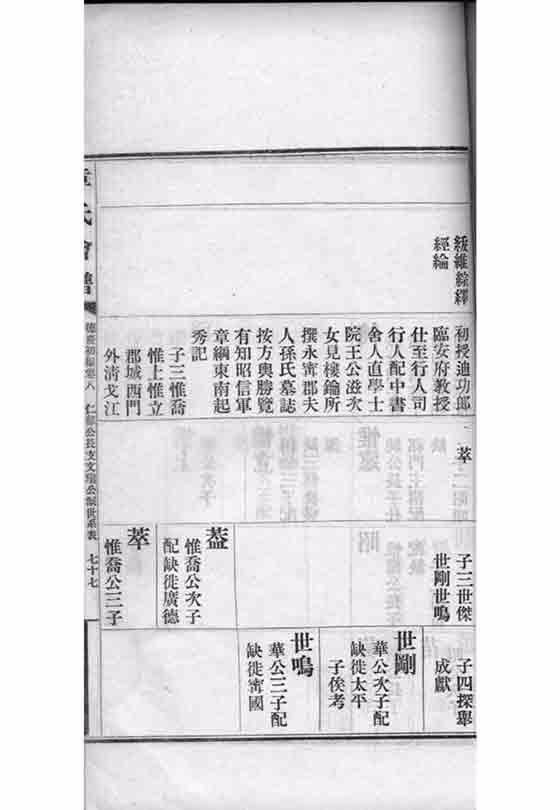 綬維綜繹
經綸
初授迪功郎
臨安府教授
仕至行人司
行人配中書
舍人直學士
院王公滋次
女見樓鑰所
撰永甯郡夫
人孫氏墓誌
按方輿勝覽
有知昭信軍
章綱東南起
秀記
子三惟喬
惟上惟立
郡城西門
外清弋江
萃
子三世傑
世剛世鳴
蓋
惟喬公次子
配缺徙廣德
萃
惟喬公三子
子四探舉
成獻
世剛
華公次子配
缺徙太平
子俟考
世鳴
華公三子配
缺徙甯國
氏會譜
七十七